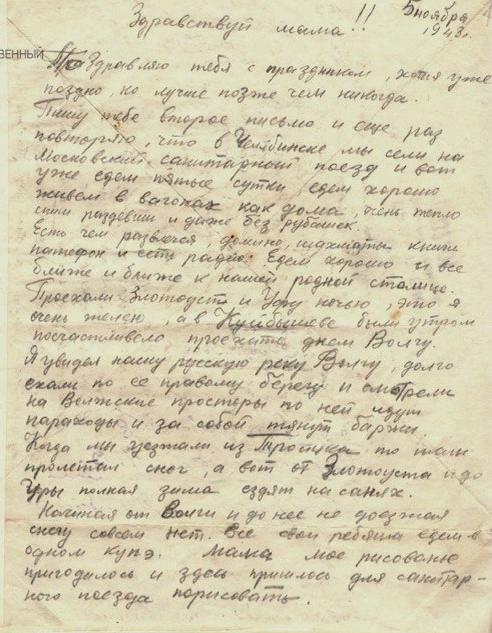 Здравствуй мама!! 5 ноября
1943г.
ВЕННЫЙ
Поздравляю тебя с праздником, хотя уже
поздно, но лучше позже чем никогда.
Пишу тебе второе письмо и еще раз
повторяю, что в Челябинске мы сели на
Московский санитарный поезд и вот
уже едем пятые сутки едем хорошо
живем в вагонах как дома, очень тепло
спим раздевши и даже без рубашек.
Есть чем развлечся, домино, шахматы книги
патефон и есть радио. Едем хорошо и все
ближе и ближе к нашей родной столице.
Проехали Златоуст и Уфу ночью, это я
очень жалею, а в Куйбышеве были утром
посчастливело проехать днем Волгу.
Я увидел нашу русскую реку Волгу, долго
ехали по ее правому берегу и смотрели
на Волжские просторы по ней идут
параходы и за собой тянут баржи
Когда мы уезжали из Троицка, то там
пролетал снег, а вот от Златоуста и до
Уфы полная зима ездят на санях.
Начиная от Волги и до нее не доезжая
снегу совсем нет. Все свои ребята едем в
одном купэ. Мама мое рисование
пригодилось и здесь пришлось для санитар-
ного поезда порисовать.